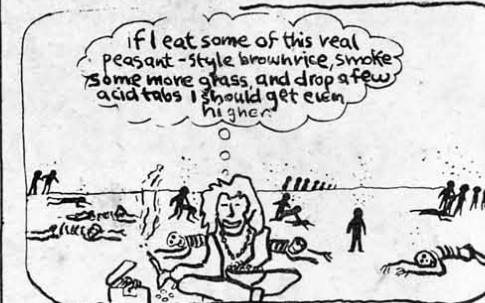 if I eat some of this real
peasant-style brownrice, smoke
some more grass, and drop a few
acid tabs I should get even
higher